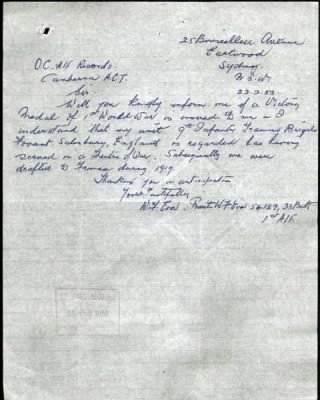 25 Avenue
Eastwood
O.C. AIF Records. Sydney
Canberra ACT. N.S.W.
Sir
Will you kindly inform me if a Victory
Medal of 1st World War is owed to me — I
understand that my unit 9th Infantry Training Brigade
Fovant, Salisbury, England is regarded as having
served in a Theatre of War. Subsequently we were
drafted to France during 1917
Thanking you in anticipation
Yours faithfully
Private W F 33 Batt
1st AIF.